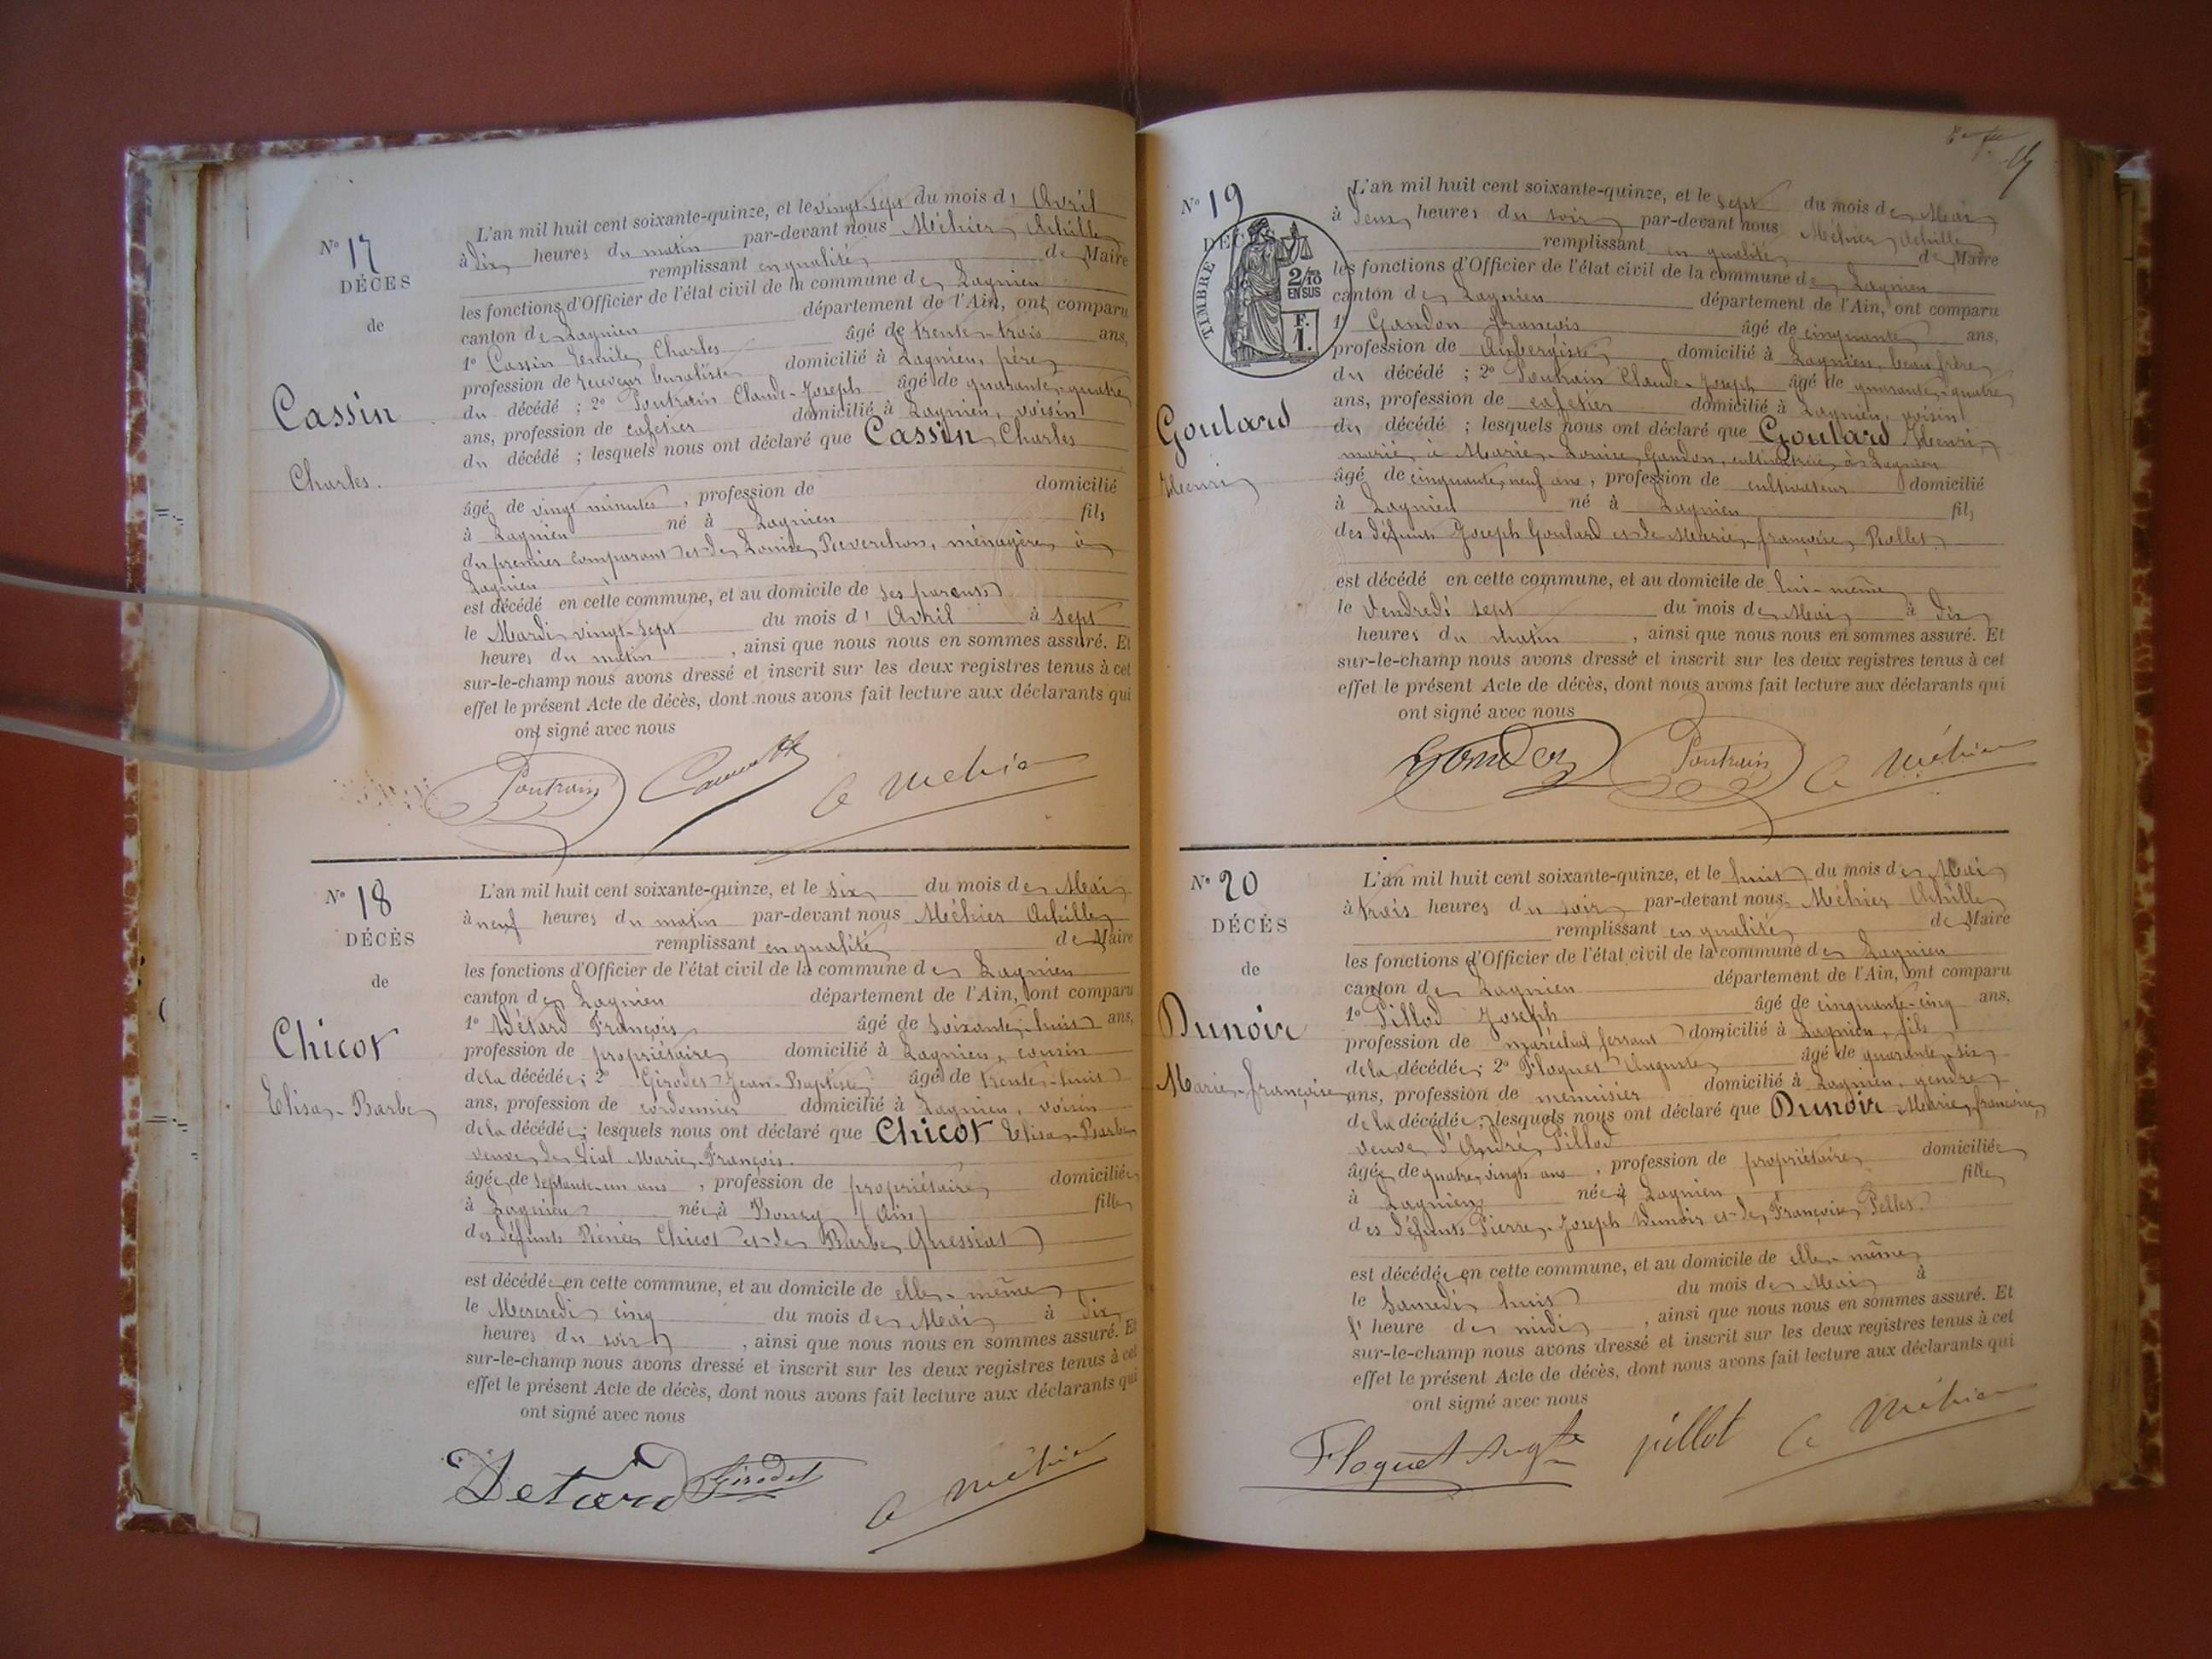 N° 17
DÉCÈS
de
Cassin
Charles.
L'an mil huit cent soixante-quinze, et le vingt-sept du mois d' Avril
à dix heures du matin par-devant nous Méhier Achille
remplissant en qualité de Maire
les fonctions d'Officier de l'état civil de la commune de Lagnieu
canton de Lagnieu département de l'Ain, ont comparu
1° Cassin Charles âgé de trente-trois ans,
profession de receveur buraliste domicilié à Lagnieu, père
du décédé ; 2° Poutrain Claude-Joseph âgé de quarante-quatre
ans, profession de cafetier domicilié à Lagnieu, voisin
du décédé ; lesquels nous ont déclaré que Cassin Charles
âgé de vingt minutes , profession de domicilié
à Lagnieu né à Lagnieu fils
du premier comparant et de Louise Reverchon, ménagère à
Lagnieu
est décédé en cette commune, et au domicile de ses parents
le Mardi vingt-sept du mois d' Avril à sept
heures du matin , ainsi que nous nous en sommes assuré. Et
sur-le-champ nous avons dressé et inscrit sur les deux registres tenus à cet
effet le présent Acte de décès, dont nous avons fait lecture aux déclarants qui
ont signé avec nous
Poutrain A Méhier
N° 18
DÉCÈS
de
Chicot
Elisa-Barbe
L'an mil huit cent soixante-quinze, et le six du mois de Mai
à neuf heures du matin par-devant nous Méhier Achille
remplissant en qualité de Maire
les fonctions d'Officier de l'état civil de la commune de Lagnieu
canton de Lagnieu département de l'Ain, ont comparu
1° Détard François âgé de soixante-huit ans,
profession de propriétaire domicilié à Lagnieu, cousin
de la décédée ; 2° Girodet Jean-Baptiste âgé de trente-huit
ans, profession de cordonnier domicilié à Lagnieu, voisin
de la décédée ; lesquels nous ont déclaré que Chicot Elisa-Barbe
veuve de Marie François.
âgée de septante-un ans , profession de propriétaire domiciliée
à Lagnieu née à Bourg (Ain) fille
des défunts Chicot et de Barbe
est décédée en cette commune, et au domicile de elle-même
le Mercredi cinq du mois de Mai à dix
heures du soir , ainsi que nous nous en sommes assuré. Et
sur-le-champ nous avons dressé et inscrit sur les deux registres tenus à cet
effet le présent Acte de décès, dont nous avons fait lecture aux déclarants qui
ont signé avec nous
Detard Girodet A Méhier
N° 19
DÉC
TIMBRE
2/10
EN SUS
F.
1.
Goulard
Henri
L'an mil huit cent soixante-quinze, et le sept du mois de Mai
à deux heures du soir par-devant nous Méhier Achille
remplissant en qualité de Maire
les fonctions d'Officier de l'état civil de la commune de Lagnieu
canton de Lagnieu département de l'Ain, ont comparu
1° Gandon François âgé de cinquante ans,
profession de Aubergiste domicilié à Lagnieu, beau frère
du décédé ; 2° Poutrain Claude-Joseph âgé de quarante-quatre
ans, profession de cafetier domicilié à Lagnieu, voisin
du décédé ; lesquels nous ont déclaré que Goulard Henri,
marié à Marie-Louise Gandon, cultivatrice à Lagnieu
âgé de cinquante-neuf ans , profession de cultivateur domicilié
à Lagnieu né à Lagnieu fils
des défunts Joseph Goulard et de Marie-françoise Rollet.
est décédé en cette commune, et au domicile de lui-même
le Vendredi sept du mois de Mai à dix
heures du matin , ainsi que nous nous en sommes assuré. Et
sur-le-champ nous avons dressé et inscrit sur les deux registres tenus à cet
effet le présent Acte de décès, dont nous avons fait lecture aux déclarants qui
ont signé avec nous
Gandon Poutrain A Méhier
N° 20
DÉCÈS
de
Dunoir
Marie-françoise
L'an mil huit cent soixante-quinze, et le huit du mois de Mai
à trois heures du soir par-devant nous Méhier Achille
remplissant en qualité de Maire
les fonctions d'Officier de l'état civil de la commune de Lagnieu
canton de Lagnieu département de l'Ain, ont comparu
1° Pillod Joseph âgé de cinquante-cinq ans,
profession de maréchal ferrant domicilié à Lagnieu, fils
de la décédée ; 2° Floquet Auguste âgé de quarante-six
ans, profession de menuisier domicilié à Lagnieu, gendre
de la décédée ; lesquels nous ont déclaré que Dunoir Marie françoise,
veuve d'André Pillod
âgée de quatre-vingts ans , profession de propriétaire domiciliée
à Lagnieu née à Lagnieu fille
des défunts Pierre-Joseph Dunoir et de Françoise Pellet.
est décédée en cette commune, et au domicile de elle-même
le Samedi huit du mois de Mai à
l' heure de midi , ainsi que nous nous en sommes assuré. Et
sur-le-champ nous avons dressé et inscrit sur les deux registres tenus à cet
effet le présent Acte de décès, dont nous avons fait lecture aux déclarants qui
ont signé avec nous
Floquet Augte pillot A Méhier